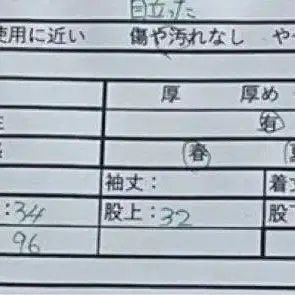 目立った
使用に近い 傷や汚れなし や
厚 厚め
有
春
袖丈： 着丈
：34 股上：32 股下
96